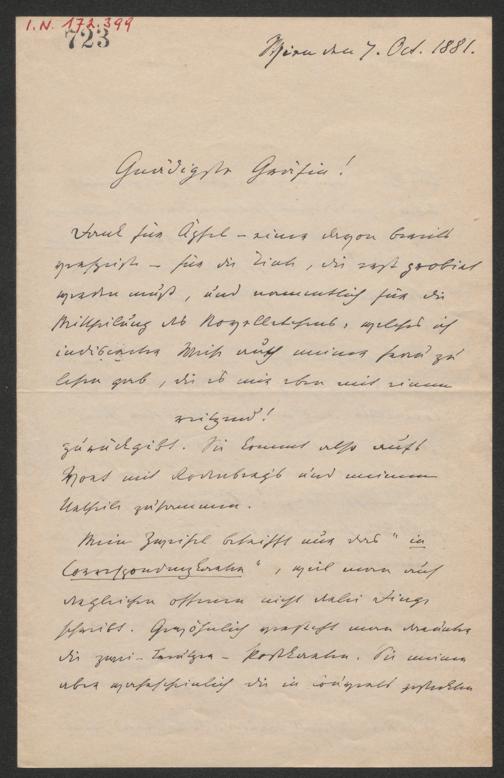 I.N. 172.399
723
Wien den 7. Oct. 1881.
Gnädigste Gräfin!
Dank für Äpfel – einer davon bereits
verspeist – für die Tinte, die erst probiert
werden muß, und namentlich für die
Mittheilung des Novellchens, welches ich
indiscreter Weise auch meiner Frau zu
lesen gab, die es mir eben mit einem
reizend!
zurückgibt. Sie kommt also aufs
Wort mit Rodenberg's und meinem
Urtheile zusammen.
Mein Zweifel betrifft nur das "in
Correspondenzkarten", weil man auf
dergleichen offenen nicht Dinge
schreibt. Gewöhnlich versteht man darunter
die zwei-Kreuzer-Postkarten. Sie meinen
aber wahrscheinlich die in Couverts gesteckten